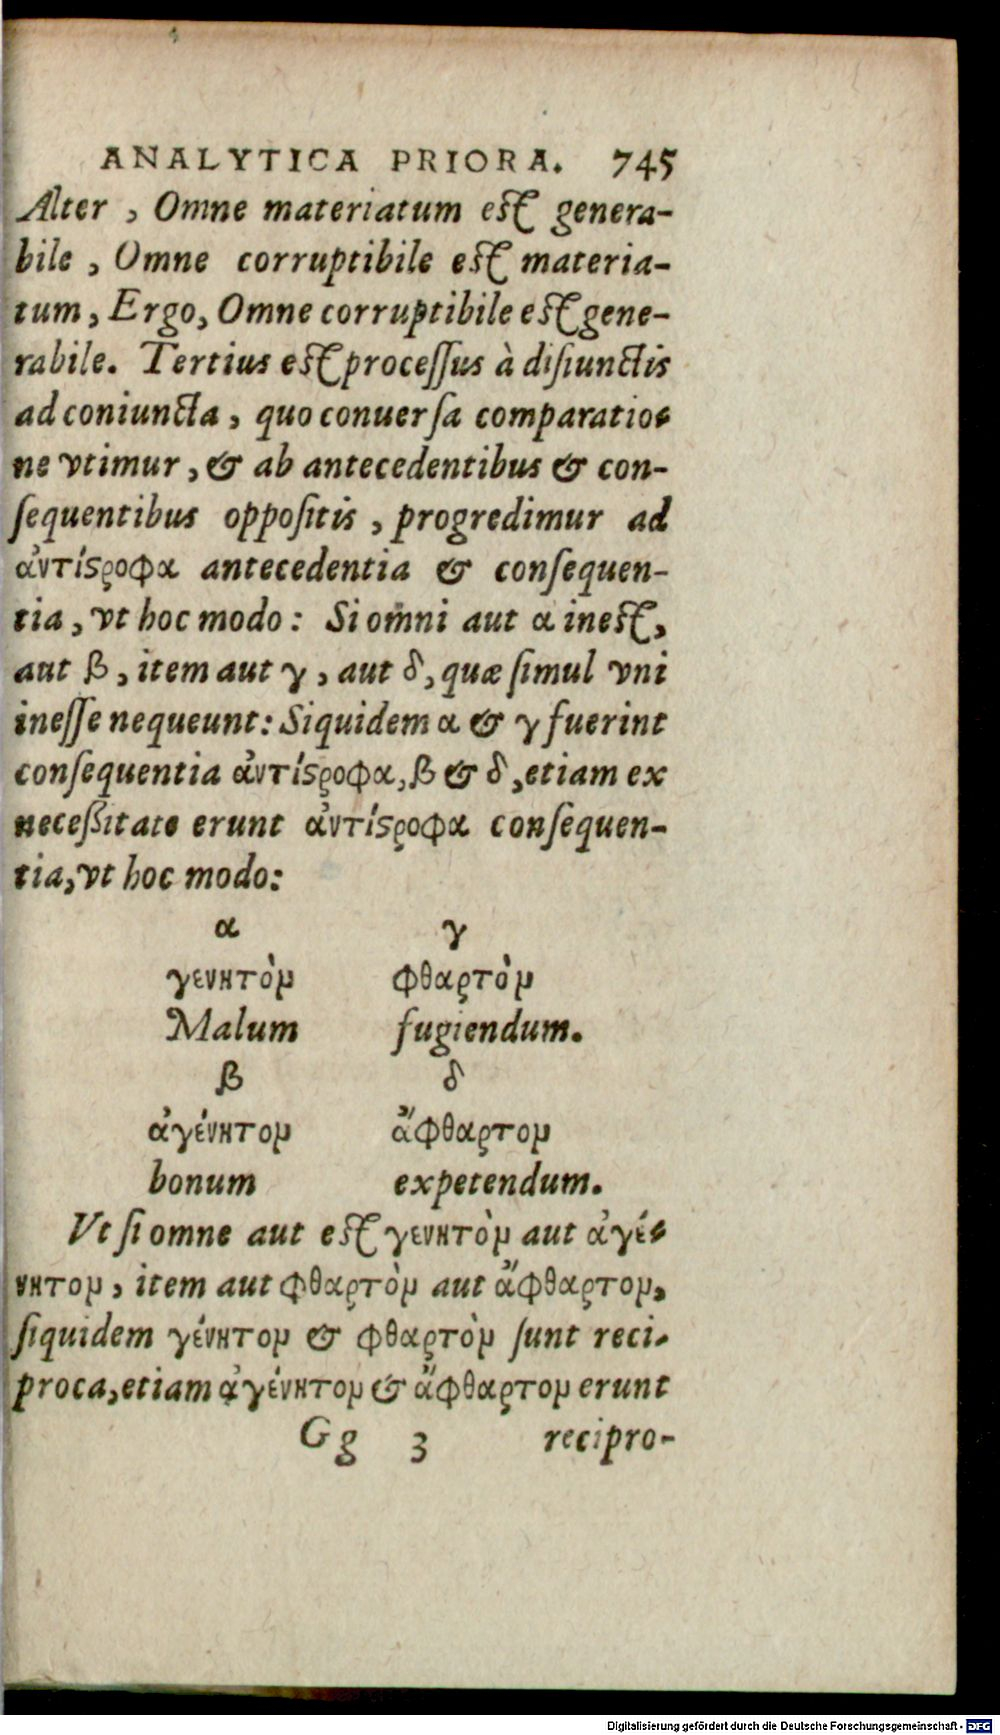 ANALYTICA PRIORA. 745
Alter , Omne materiatum est genera-
bile , Omne corruptibile est materia-
tum, Ergo, Omne corruptibile est gene-
rabile. Tertius est proceſſus à diſiunctis
ad coniuncta, quo conuerſa comparatio-
ne vtimur, & ab antecedentibus & con-
ſequentibus oppoſitis, progredimur ad
ἀντίςροφα antecedentia & conſequen-
tia, vt hoc modo: Si omni aut α inest,
aut β, item aut γ, aut δ, quæ ſimul vni
ineſſe nequeunt: Siquidem α & γ fuerint
conſequentia ἀντίςροφα, β & δ, etiam ex
neceßitate erunt ἀντίςροφα conſequen-
tia, vt hoc modo:
α γ
γενητὸμ φθαρτὸμ
Malum fugiendum.
β δ
ἀγένητομ ἄφθαρτομ
bonum expetendum.
Vt ſi omne aut est γενητὸμ aut ἀγέ-
νητομ, item aut φθαρτὸμ aut ἄφθαρτομ,
ſiquidem γένητομ & φθαρτὸμ ſunt reci-
proca, etiam ἀγένητομ & ἄφθαρτομ erunt
Gg 3 recipro-
Digitalisierung gefördert durch die Deutsche Forschungsgemeinschaft - DFG